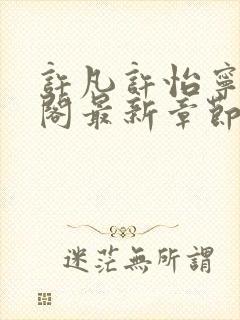 許凡許怡寧
閣最新章節
迷茫無所謂